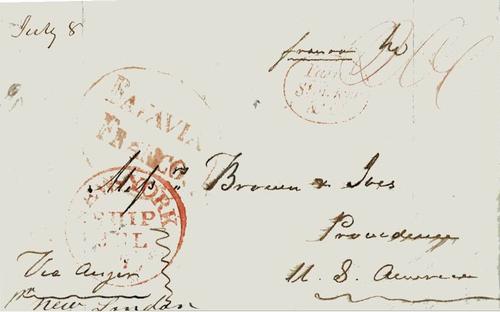 July 8
franco
BATAVIA
FRANCO
Mess rs Brown & Ives
NEW YORK
SHIP
JUL
Providence
U. S. America
Via Anjer
pr New London